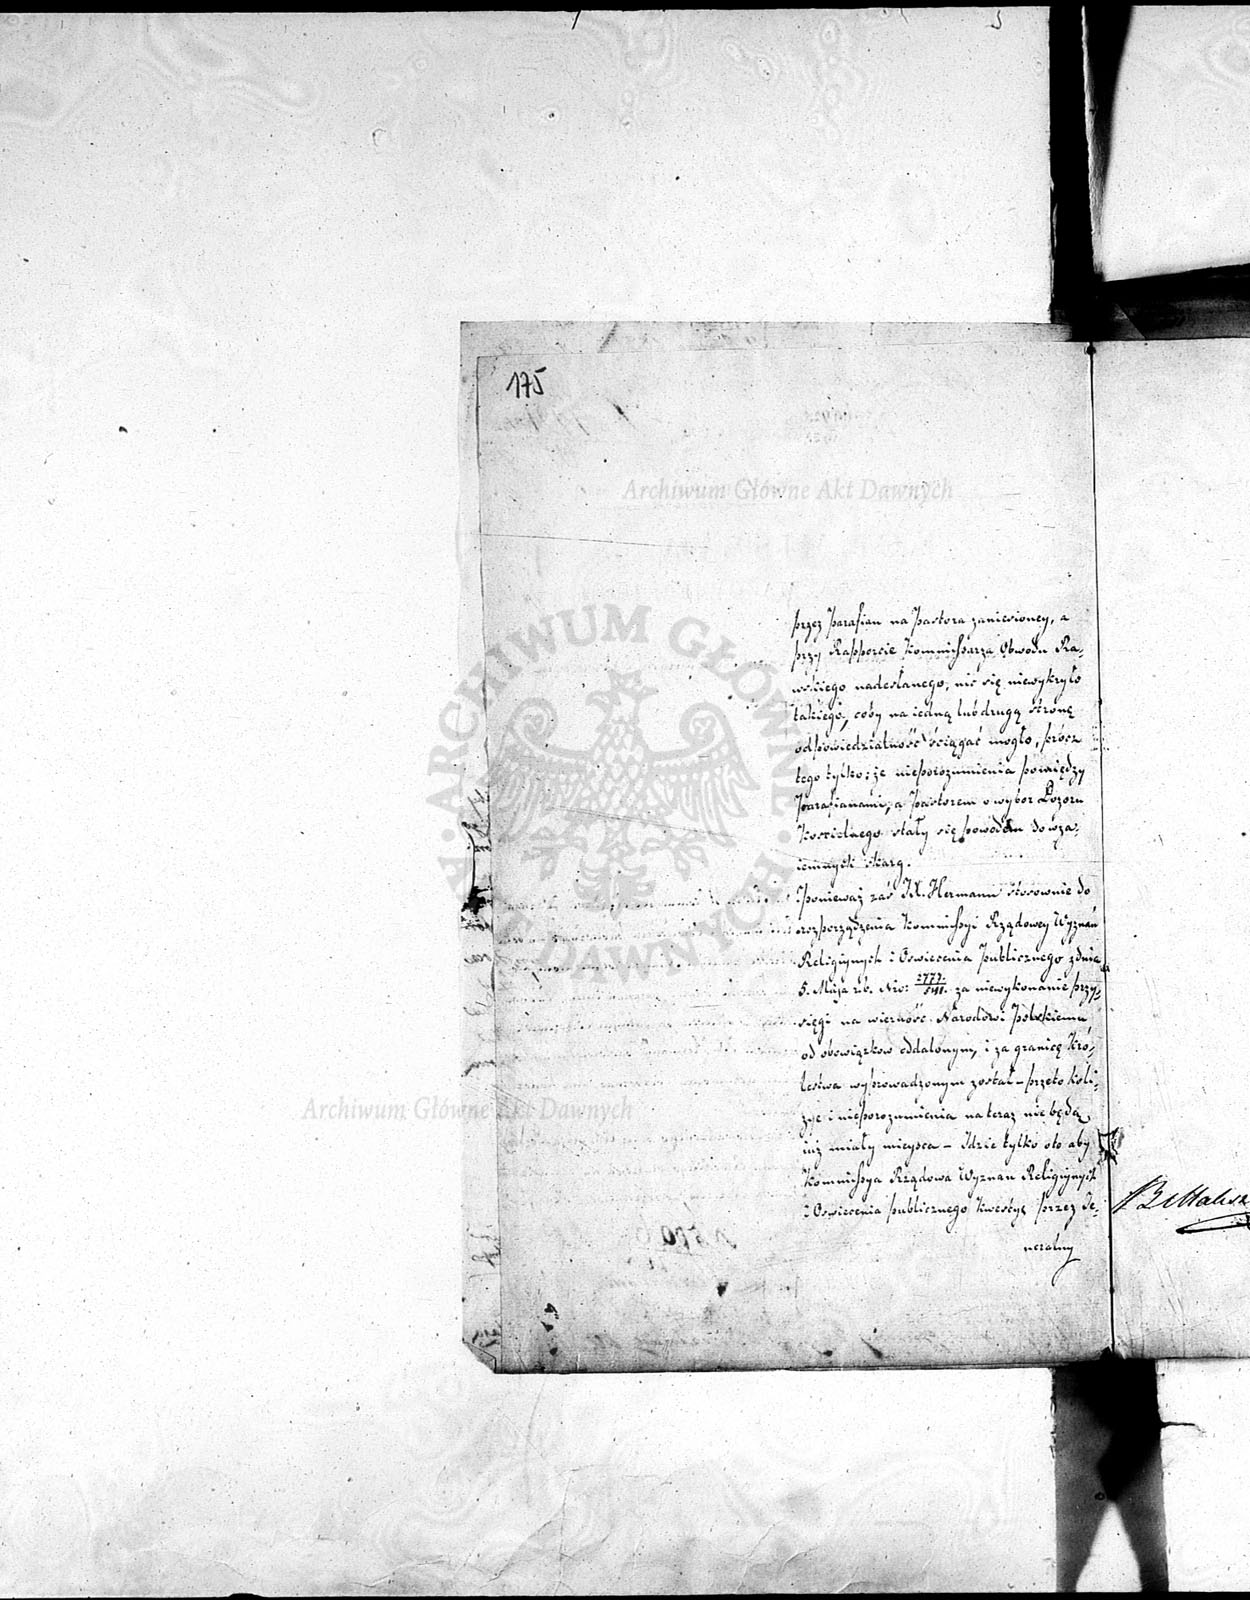 175
Archiwum Główne Akt Dawnych
ARCHIWUM GŁÓWNE AKT DAWNYCH
przez Parafian na Pastora zaniesioney, a
przy Rapporcie Kommissarza Obwodu Ra-
wskiego nadesłanego, nic się niewykryło
takiego, coby na iedną lub drugą stronę
odpowiedzialność ściągać mogło, prócz
tego tylko; że nieporozumienia pomiędzy
Parafianami, a Pastorem o wybor Dozoru
Kościelnego stały się powodem do wza-
iemnych skarg.
Ponieważ zaś X. Hermann stosownie do
rozporządzenia Kommissyi Rządowey Wyznań
Religiynych i Oswiecenia Publicznego z dnia
5. Maja r.b. Nro: za niewykonanie przy-
sięgi na wierność Narodowi Polskiemu
od obowiązkow oddalonym, i za granicę Kró-
lestwa wyprowadzonym został – przeto koli-
zye i nieporozumienia na teraz nie będą
iuż miały mieysca – Idzie tylko oto aby
Kommissya Rządowa Wyznań Religiynych
i Oswiecenia publicznego Kwestyę przez Je-
neralny
Archiwum Główne Akt Dawnych